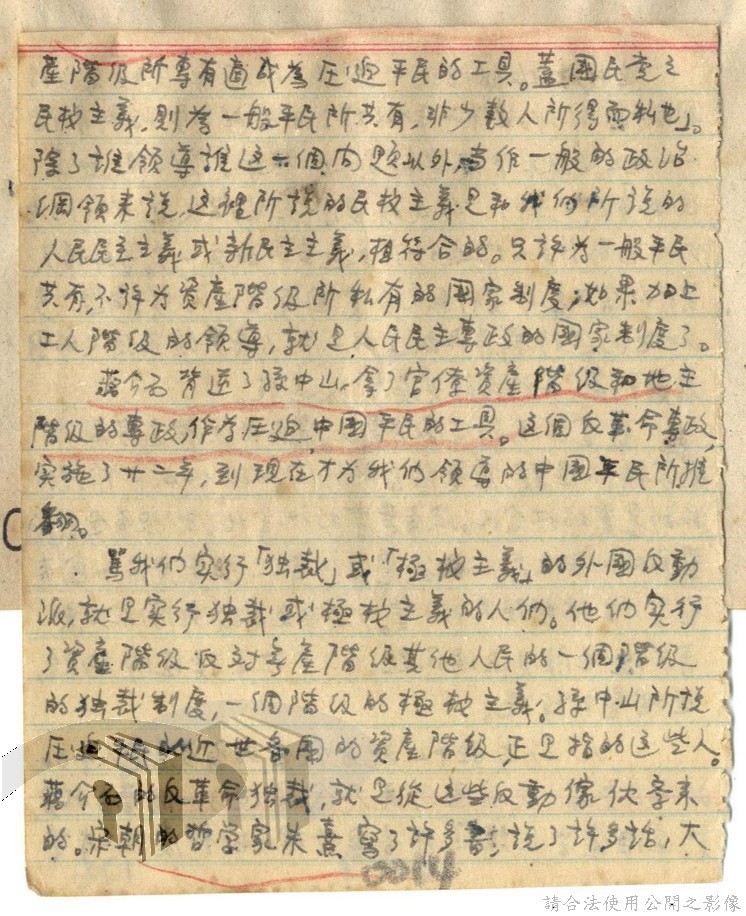 產階級所專有適成為压迫平民的工具。蓋國民党之
民权主義,則為一般平民所共有,非少数人所得而私也」。
除了誰領導誰这一個问题以外,当作一般的政治
綱領来說,这裡所說的民权主義是和我们所說的
人民民主主義或新民主主義,相符合的。只許为一般平民
共有,不許为資產階級所私有的国家制度,如果加上
工人階級的領導,就是人民民主專政的国家制度了。
蔣介石背送了孫中山,拿了官僚資產階級和地主
階級的專政,作為压迫中國平民的工具。这個反革命專政,
实施了廿二年,到現在才为我们領導的中国平民所推
翻。
罵我们实行「独裁」或「極权主義」的外國反動
派,就是实行独裁或極权主義的人们。他们实行
了資產階級反对無產階級其他人民的一個階級
的独裁制度,一個階級的極权主義。孫中山所說
压迫平民的近世各国的資產階級,正是指的这些人。
蔣介石的反革命独裁,就是從这些反動傢伙学来
的。宋朝的哲学家朱熹寫了許多書,說了許多話,大
請合法使用公開之影像